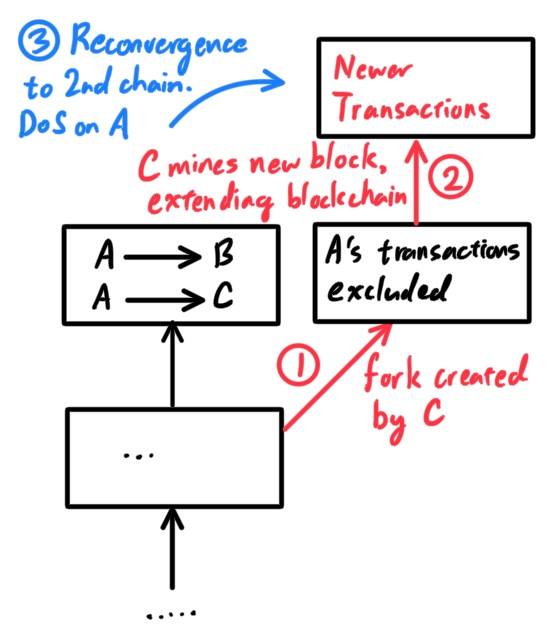 ③ Reconvergence
to 2nd chain.
DoS on A
Newer
Transactions
C mines new block,
extending blockchain
②
A → B
A → C
A's transactions
excluded
①
fork created
by C
...
.....